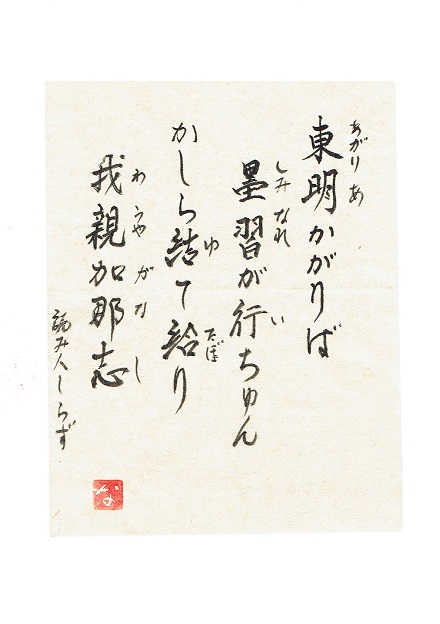 あがりあ
東明かがりば
しみなれ い
墨習が行ちゅん
ゆ たぼ
かしら結て給り
わうやがなし
我親加那志
読み人しらず